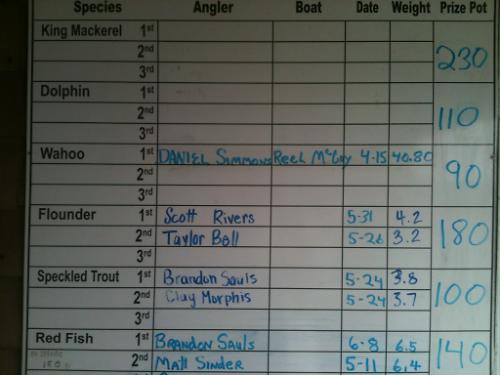 Species Angler Boat Date Weight Prize Pot
King Mackerel 1st
2nd
3rd
230
Dolphin 1st
2nd
3rd
110
Wahoo 1st DANIEL Simmons Reel McCoy 4-15 40.80
2nd
3rd
90
Flounder 1st Scott Rivers 5-31 4.2
2nd Taylor Bell 5-26 3.2
3rd
180
Speckled Trout 1st Brandon Sauls 5-24 3.8
2nd Clay Morphis 5-24 3.7
3rd
100
Red Fish 1st BRANDON SAULS 6-8 6.5
2nd Matt Sinder 5-11 6.4
140